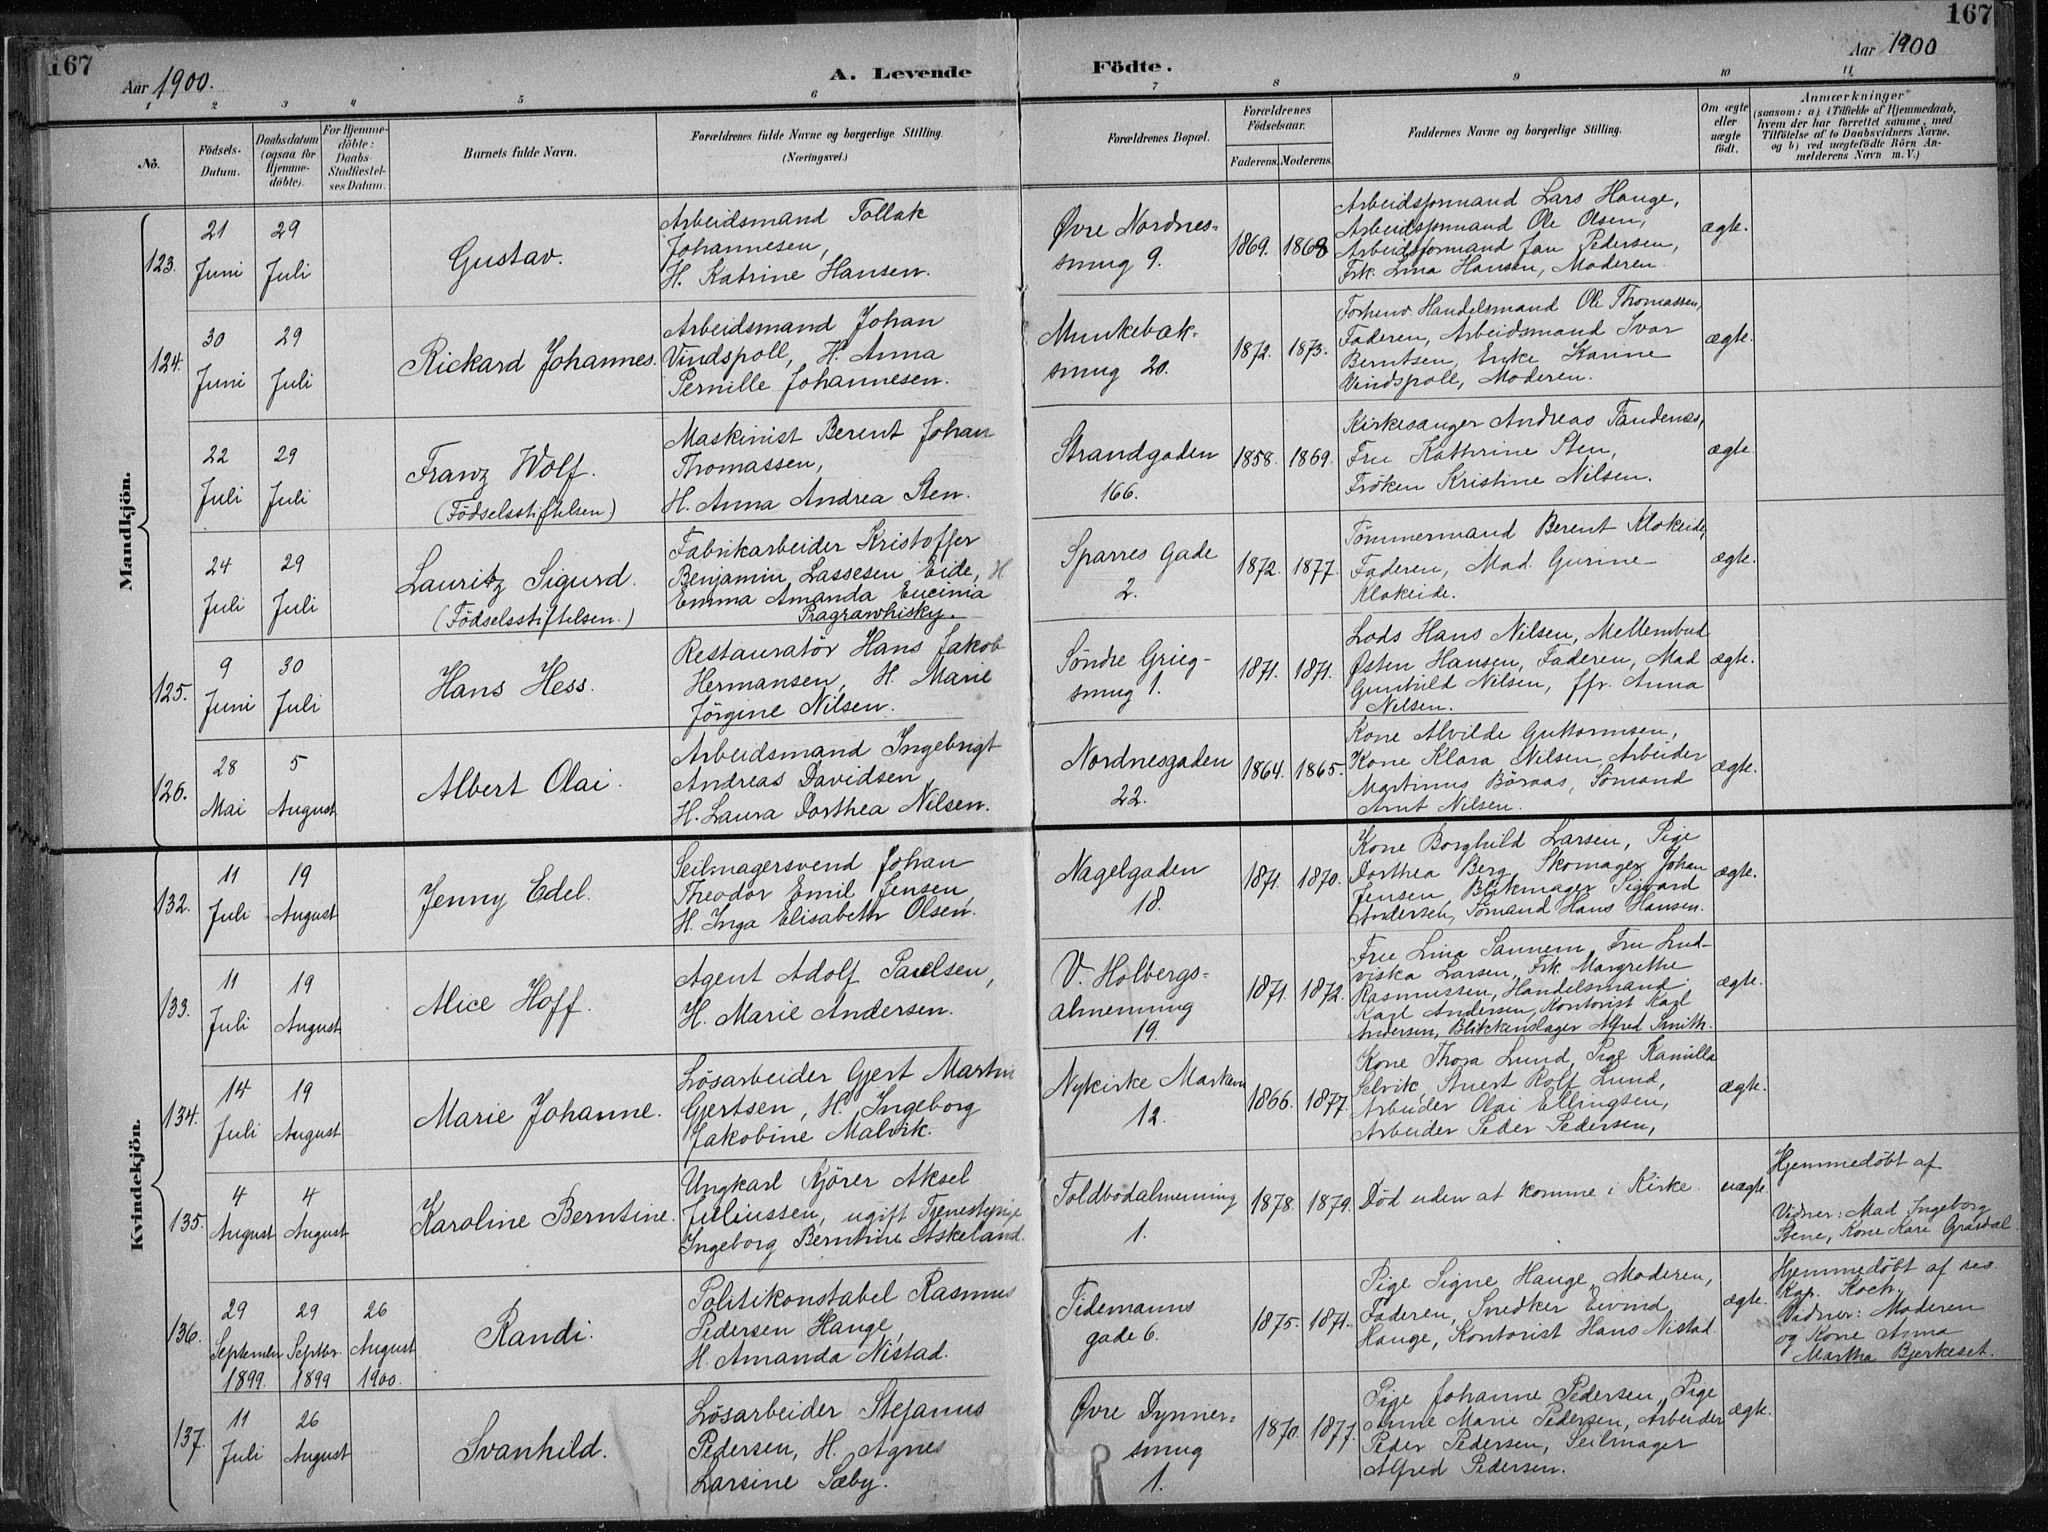 167
167
Aar 1900.
A. Levende
Födte.
Aar 1900
1 2 3 4 5 6 7 8 9 10 11
No.
Födsels-
Datum.
Daabsdatum
(ogsaa for
Hjemme-
döbte).
For Hjemme-
döbte:
Daabs-
Stadfæstel-
ses Datum.
Barnets fulde Navn.
Forældrenes fulde Navne og borgerlige Stilling.
(Næringsvei.)
Forældrenes Bopæl.
Forældrenes
Födselsaar.
Faderens. Moderens.
Faddernes Navne og borgerlige Stilling.
Om ægte
eller
uægte
födt.
Anmærkninger
(saasom: a) i Tilfælde af Hjemmedaab,
hvem der har forrettet samme, med
Tilföielse af to Daabsvidners Navne,
og b) ved uægtefödte Börn An-
melderens Navn m. V.)
Mandkjön.
123.
21
Juni
29
Juli
Gustav.
Arbeidsmand Tollak
Johannesen,
H. Katrine Hansen.
Øvre Nordnes-
smug 9.
1869. 1868
Arbeidsformand Lars Hauge,
Arbeidsformand Ole Olsen,
Arbeidsformand Jan Pedersen,
Frk. Lina Hansen, Moderen.
ægte.
124.
30
Juni
29
Juli
Rickard Johannes.
Arbeidsmand Johan
Vindspoll, H. Anna
Pernille Johannesen.
Munkebæk-
smug 20.
1872. 1873.
Forhenv. Handelsmand Ole Thomassen,
Faderen, Arbeidsmand Ivar
Berntsen, Enke Karine
Vindspoll, Moderen.
ægte.
22
Juli
29
Juli
Franz Wolf.
(Födselsstiftelsen)
Maskinist Berent Johan
Thomassen,
H. Anna Andrea Sten.
Strandgaden
166.
1858. 1869.
Kirkesanger Andreas Tandenæs,
Frue Kathrine Sten,
Fröken Kristine Nilsen.
ægte.
24
Juli
29
Juli
Lauritz Sigurd.
(Födselsstiftelsen.)
Fabrikarbeider Kristoffer
Benjamin Lassesen Eide, H.
Emma Amanda Eucinia
Pragrawhisky.
Sparres Gade
2.
1872. 1877.
Tömmermand Berent Klokeide,
Faderen, Mad. Gurine
Klokeide.
ægte.
125.
9
Juni
30
Juli
Hans Hess.
Restauratör Hans Jakob
Hermansen, H. Marie
Jörgine Nilsen.
Söndre Grieg-
smug 1.
1871. 1871.
Lods Hans Nilsen, Mellembud
Østen Hansen, Faderen, Mad
Gunhild Nilsen, ffr. Anna
Nilsen.
ægte.
126.
28
Mai
5
August
Albert Olai.
Arbeidsmand Ingebrigt
Andreas Davidsen,
H. Laura Dorthea Nilsen.
Nordnesgaden
22.
1864. 1865.
Kone Alvilde Guttormsen,
Kone Klara Nilsen, Arbeider
Martinus Böraas, Sömand
Arnt Nilsen.
ægte.
Kvindekjön.
132.
11
Juli
19
August
Jenny Edel.
Seilmagersvend Johan
Theodor Emil Jensen,
H. Inga Elisabeth Olsen.
Nagelgaden
18.
1871. 1870.
Kone Borghild Larsen, Pige
Dorthea Berg, Skomager Johan
Jensen, Blikmager Sigvard
Andersen, Sömand Hans Hansen.
ægte.
133.
11
Juli
19
August
Alice Hoff.
Agent Adolf Paulsen,
H. Marie Andersen.
V. Holbergs-
almenning
19.
1871. 1872.
Frue Lina Sannem, Fru Lud-
viska Larsen, Frk. Margrethe
Rasmussen, Handelsmand
Karl Andersen, Kontorist Karl
Andersen, Blikkenslager Alfred Smith.
ægte.
134.
14
Juli
19
August
Marie Johanne.
Lösarbeider Gjert Martin
Gjertsen, H. Ingeborg
Jakobine Malvik.
Nykirke Marken
12.
1866. 1877.
Kone Thora Lund, Pige Kamilla
Selvik, Stuert Rolf Lund,
Arbeider Olai Ellingsen,
Arbeider Peder Pedersen,
ægte.
135.
4
August
4
August
Karoline Berntine.
Ungkarl Kjörer Aksel
Juliussen, ugift Tjenestepige
Ingeborg Berntine Askeland.
Toldbodalmenning
1.
1878. 1879.
Död uden at komme i Kirke.
uægte.
Hjemmedöbt af
Vidner: Mad. Ingeborg
Stene, Kone Kari Grasdal.
136.
29
September
1899.
29
Septbr.
1899
26
August
1900.
Randi.
Politikonstabel Rasmus
Pedersen Hauge,
H. Amanda Nistad.
Tidemanns
gade 6.
1875. 1871.
Pige Signe Hauge, Moderen,
Faderen, Snedker Eivind
Hauge, Kontorist Hans Nistad.
ægte.
Hjemmedöbt af res.
Kap. Koch.
Vidner: Moderen
og Kone Anna
Martha Bjerkeset.
137.
11
Juli
26
August
Svanhild.
Lösarbeider Stefanus
Pedersen, H. Agnes
Larsine Sæby.
Øvre Dynner-
smug
1.
1870. 1877.
Pige Johanne Pedersen, Pige
Anne Marie Pedersen, Arbeider
Peder Pedersen, Seilmager
Alfred Pedersen.
ægte.